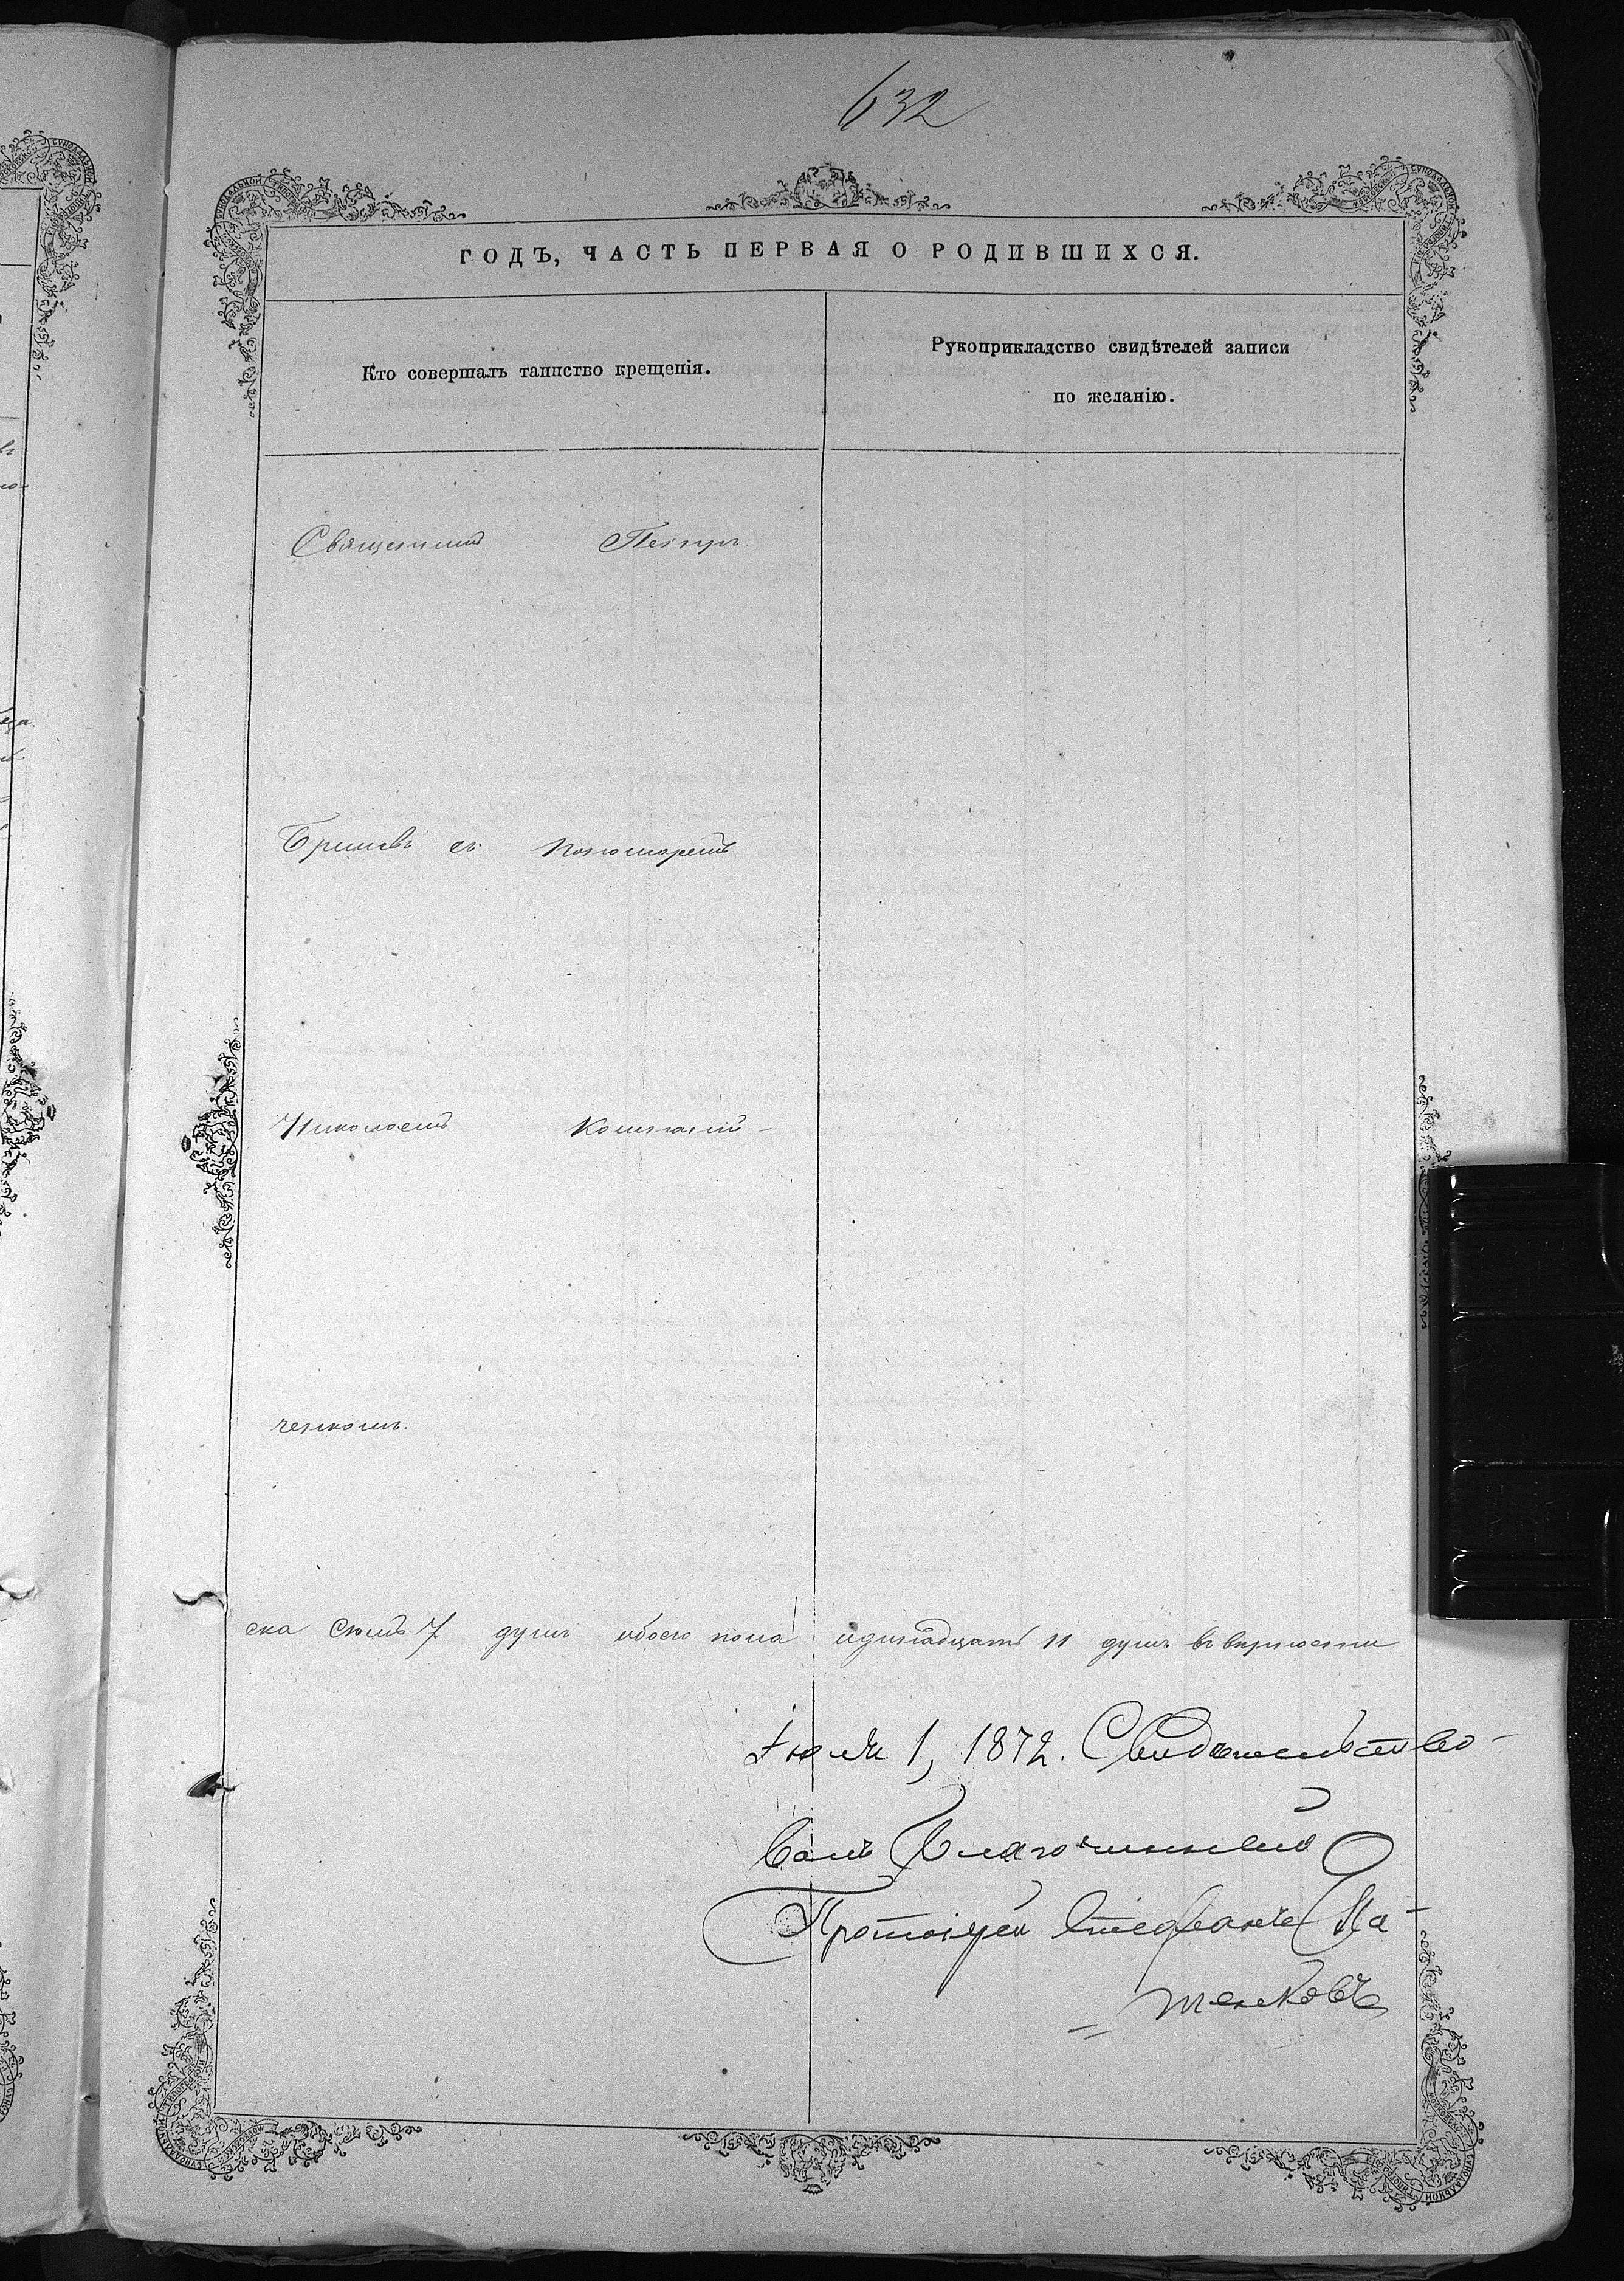 632
ГОДЪ, ЧАСТЬ ПЕРВАЯ О РОДИВШИХСЯ.
Кто совершалъ таинство крещенія.
Рукоприкладство свидѣтелей записи
по желанію.
Священникъ Петръ
съ пономаремъ
Николаемъ
ска семь 7 душъ обоего пола одинадцать 11 душъ въ вѣрности
Іюля 1, 1872. Свидѣтельство-
валъ Благочинный
Протоіерей Стефанъ Па-
тенковъ